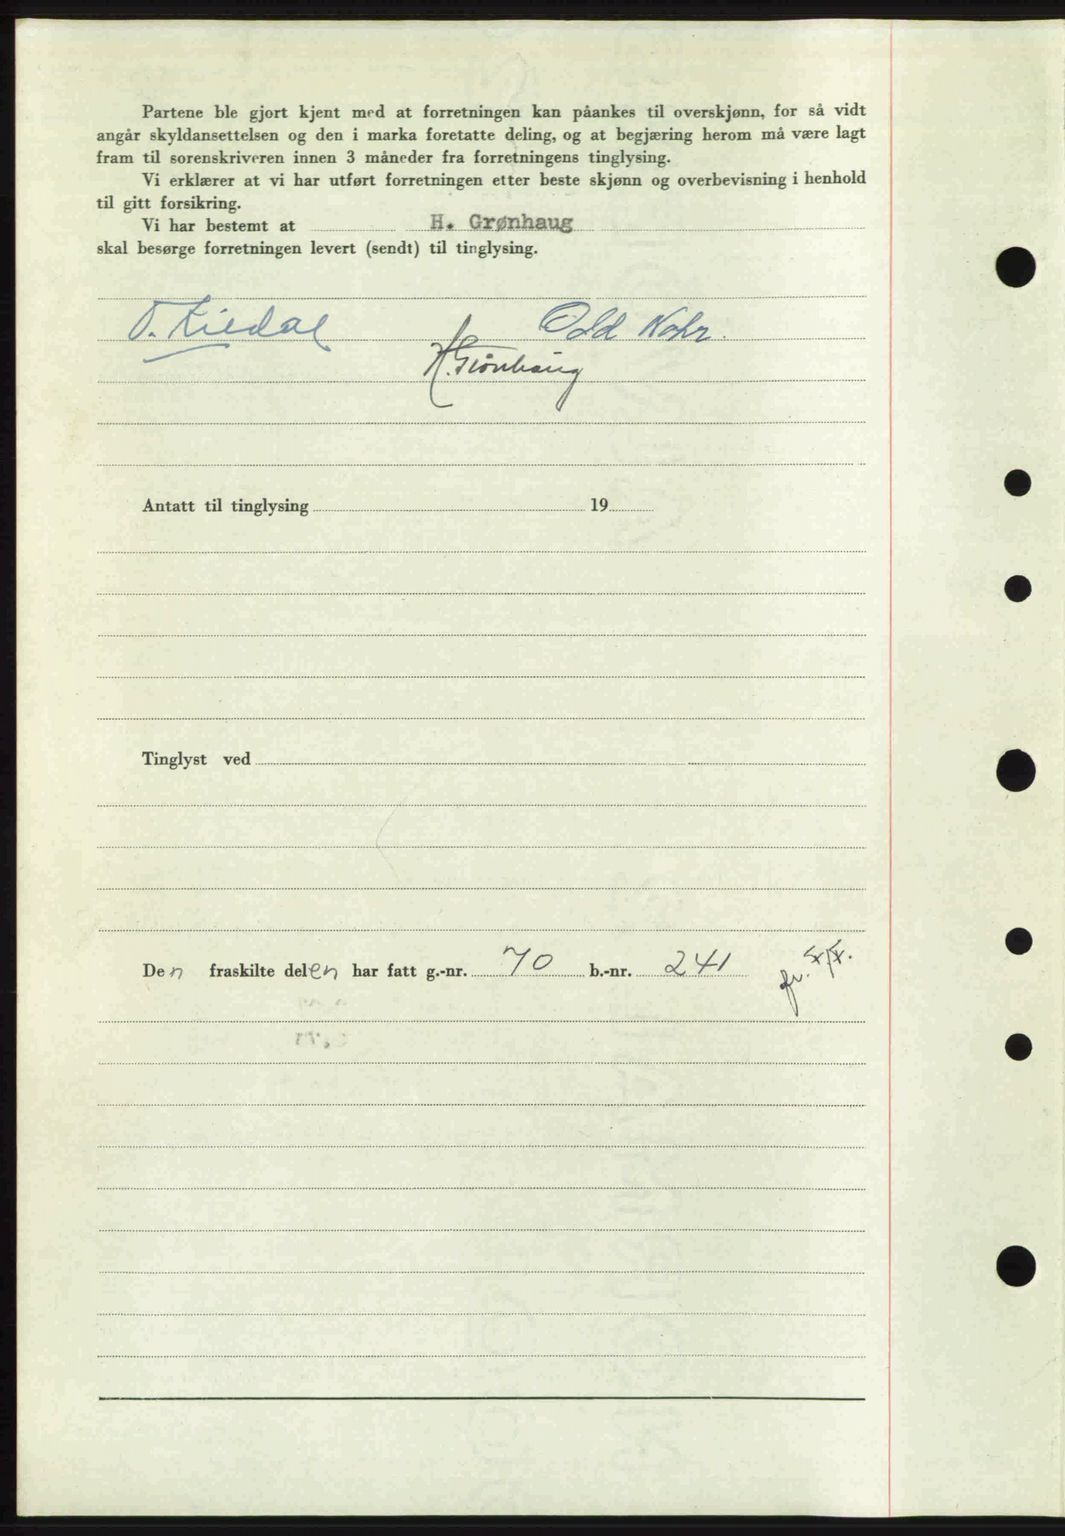 Partene ble gjort kjent med at forretningen kan påankes til overskjønn, for så vidt
angår skyldansettelsen og den i marka foretatte deling, og at begjæring herom må være lagt
fram til sorenskriveren innen 3 måneder fra forretningens tinglysing.
Vi erklærer at vi har utført forretningen etter beste skjønn og overbevisning i henhold
til gitt forsikring.
Vi har bestemt at H. Grønhaug
skal besørge forretningen levert (sendt) til tinglysing.
Odd Nohr.
H. Grønhaug
Antatt til tinglysing 19
Tinglyst ved
Den fraskilte delen har fatt g.-nr. 70 b.-nr. 241